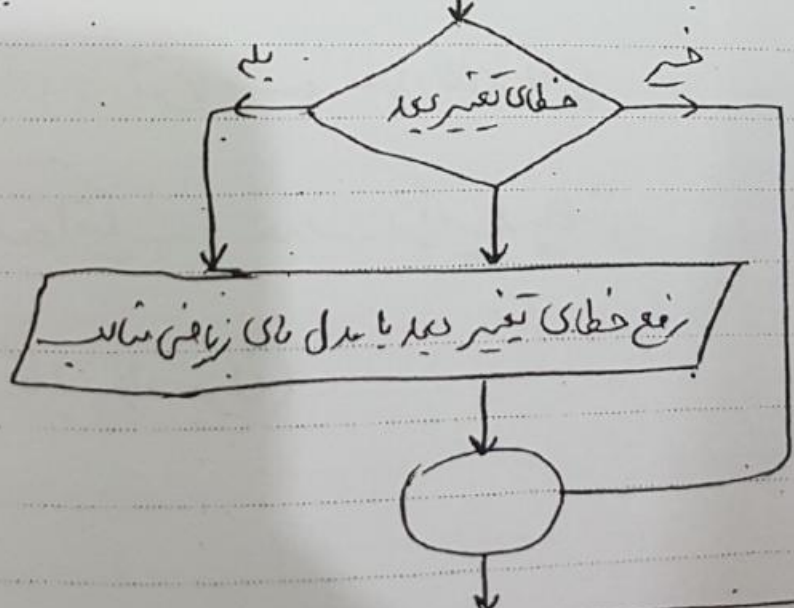 خیر
بله
خطای تغییر دید
رفع خطای تغییر دید با مدل های ریاضی مناسب